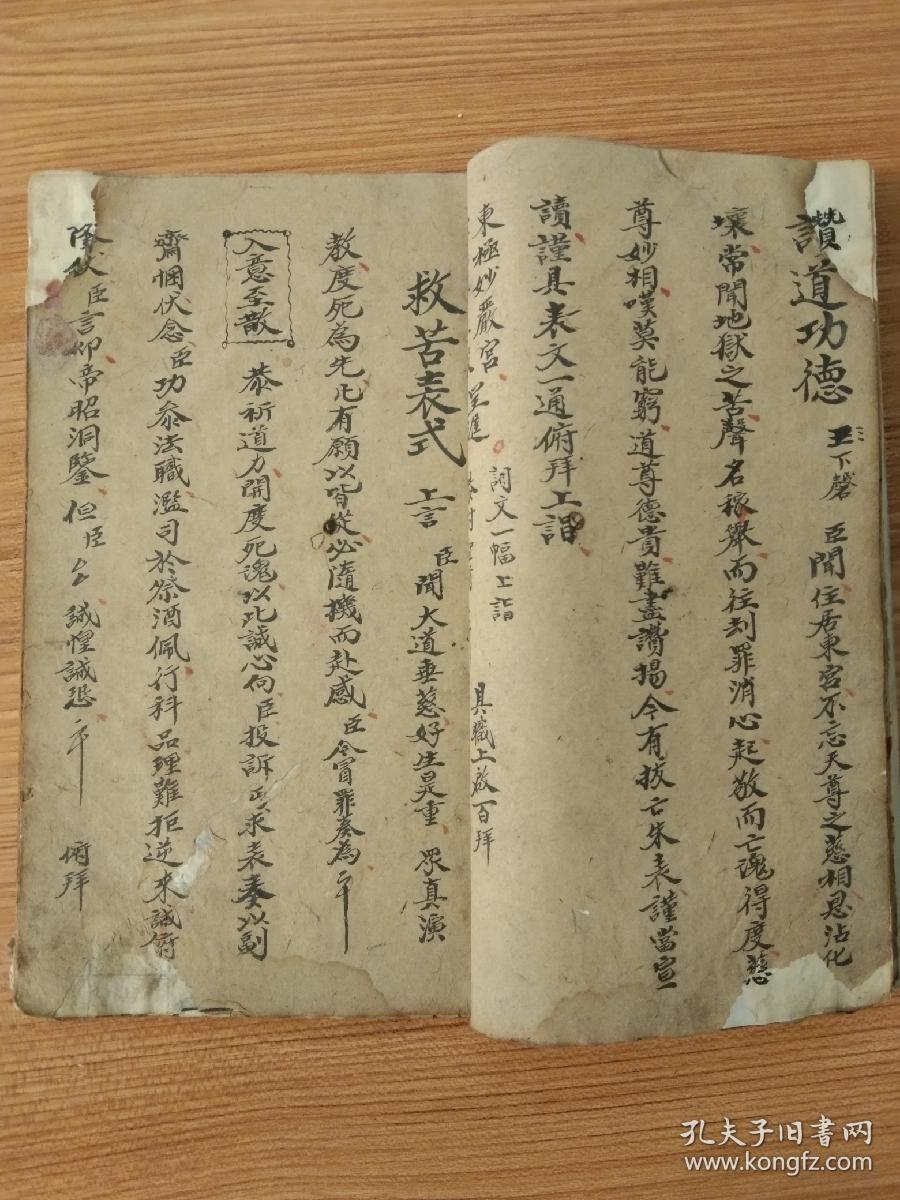 讚道功德 下磬 臣聞住居東宮不忘天尊之慈相恩沾化
壞常聞地獄之苦聲名稼舉而往刦罪消心起敬而亡魂得度慈
尊妙相嘆莫能窮道尊德貴難盡讚揚今有拔亡朱表謹當宣
讀謹具表文一通俯拜上詣
東極妙嚴宮 呈進 詞文一幅上詣 具職上啟百拜
救苦表式 上言 臣聞大道垂慈好生是重 眾真演
教度死為先凡有願以皆從必隨機而赴感臣今冒罪奏為
入意至散 恭祈道力開度死魂以此誠心向臣投訴求表奏以副
齋悃伏念臣功叅法職濫司於祭酒佩行科品理難拒逆來誠俯
臣言仰帝昭洞鑒但臣厶誠惶誠恐 俯拜
孔夫子旧书网
www.kongfz.com